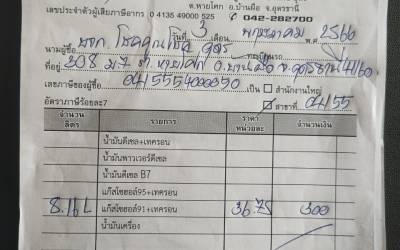 ต.หายโศก อ.บ้านผือ จ.อุดรธานี
เลขประจำตัวผู้เสียภาษีอากร 0 4135 49000 525 042-282700
วันที่ 3 เดือน พฤษภาคม พ.ศ. 2566
นามผู้ซื้อ หจก. โชคคูณโชค อุดร
ที่อยู่ 208 ม.7 ต. หายโศก อ.บ้านผือ จ.อุดรธานี 41160
เลขภาษีของผู้ซื้อ 0415554000090 เป็น สำนักงานใหญ่
อัตราภาษีร้อยละ7 สาขาที่ 04155
จำนวน ลิตร รายการ ราคา หน่วยละ จำนวนเงิน
น้ำมันดีเซล+เทครอน
น้ำมันพาวเวอร์ดีเซล
น้ำมันดีเซล B7
แก๊สโซฮอล์95+เทครอน
8.16 L แก๊สโซฮอล์91+เทครอน 36.75 300
น้ำมันเครื่อง